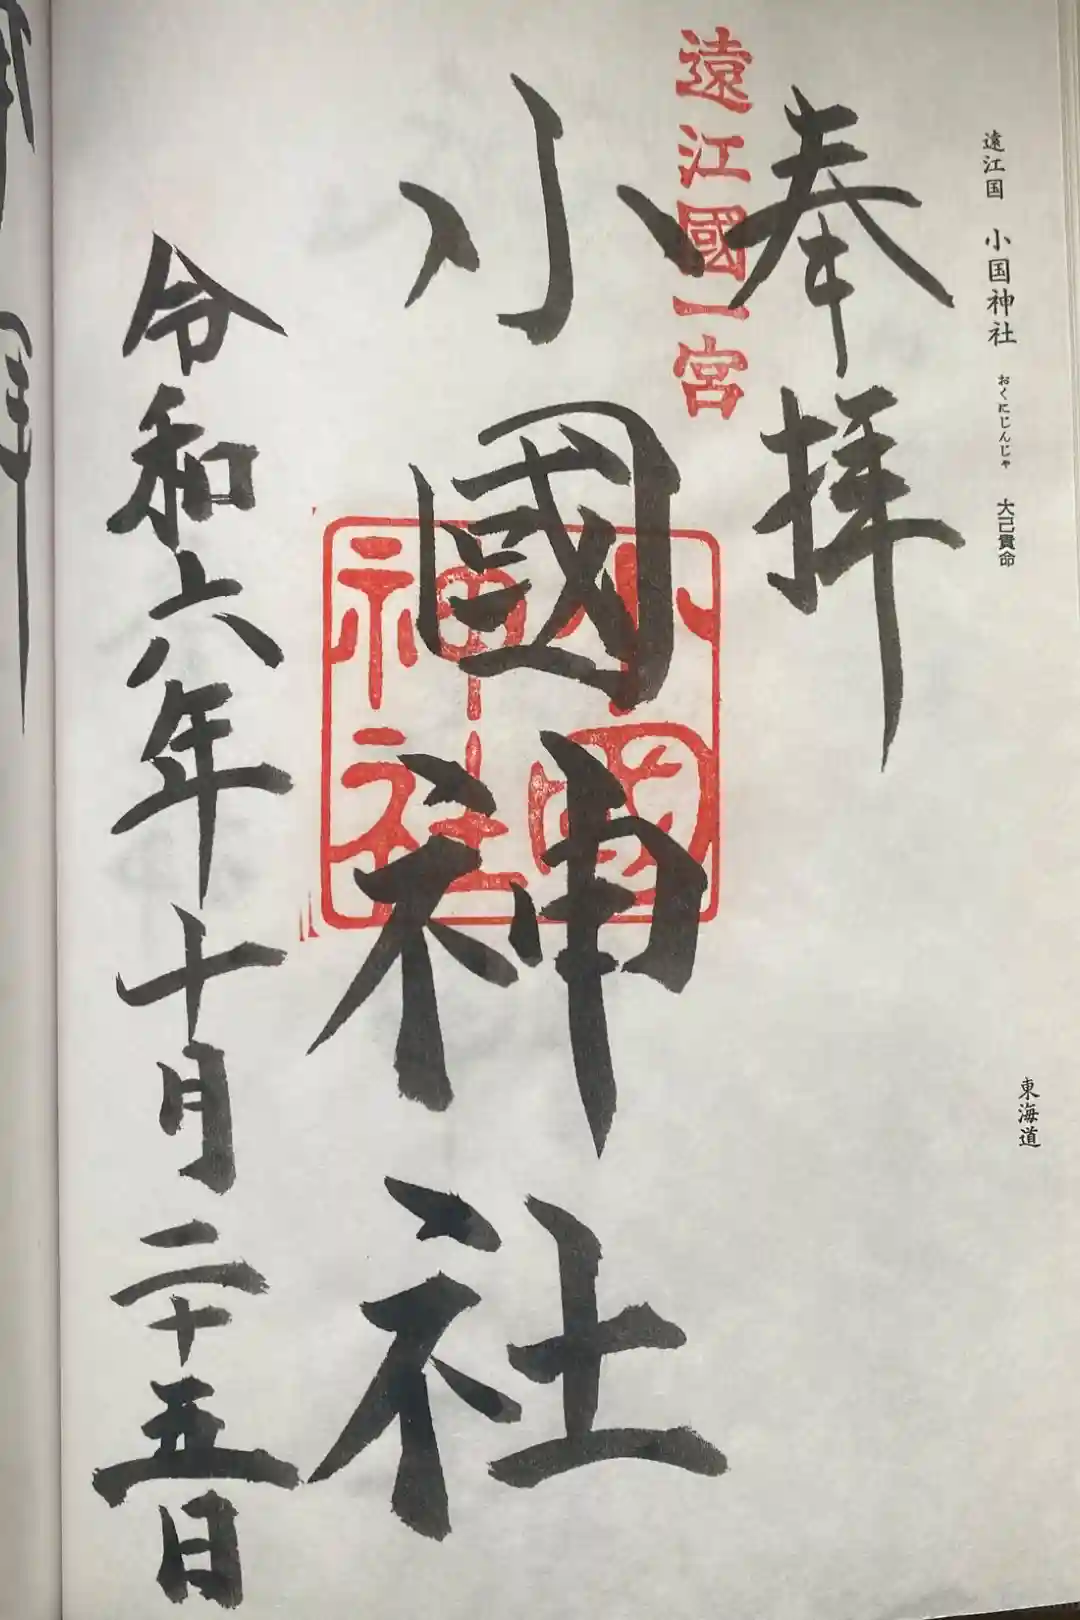 遠江国 小国神社 おくにじんじゃ 大己貴命
東海道
奉拝
遠江國一宮
小國神社
小國神社
令和六年十月二十五日